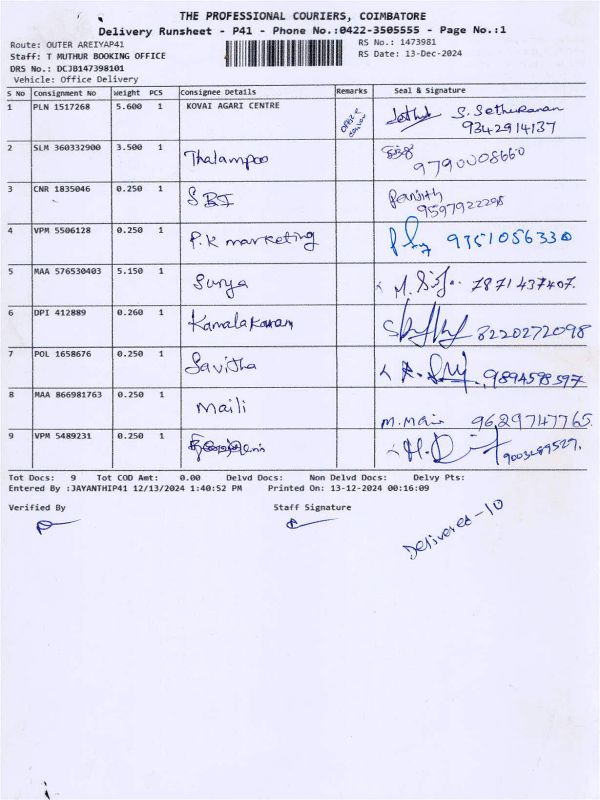 THE PROFESSIONAL COURIERS, COIMBATORE
Delivery Runsheet - P41 - Phone No.:0422-3505555 - Page No.:1
Route: OUTER AREIYAP41
RS No.: 1473981
Staff: T MUTHUR BOOKING OFFICE
RS Date: 13-Dec-2024
DRS No.: DCJB147398101
Vehicle: Office Delivery
S No Consignment No Weight PCS Consignee Details Remarks Seal & Signature
1 PLN 1517268 5.600 1 KOVAI AGARI CENTRE S. Sethuraman
9342914137
2 SLM 360332900 3.500 1 Thalampoo
9790008660
3 CNR 1835046 0.250 1 SBI
9597922298
4 VPM 5506128 0.250 1 P.K marketing 9751056330
5 MAA 576530403 5.150 1 Surya 7871437407.
6 DPI 412889 0.260 1 8220272098
7 POL 1658676 0.250 1 Savitha 9894598597
8 MAA 866981763 0.250 1 Maili
9629747765
9 VPM 5489231 0.250 1 9003489529.
Tot Docs: 9 Tot COD Amt: 0.00 Delvd Docs: Non Delvd Docs: Delvy Pts:
Entered By :JAYANTHIP41 12/13/2024 1:40:52 PM Printed On: 13-12-2024 00:16:09
Verified By Staff Signature
Delivered-10